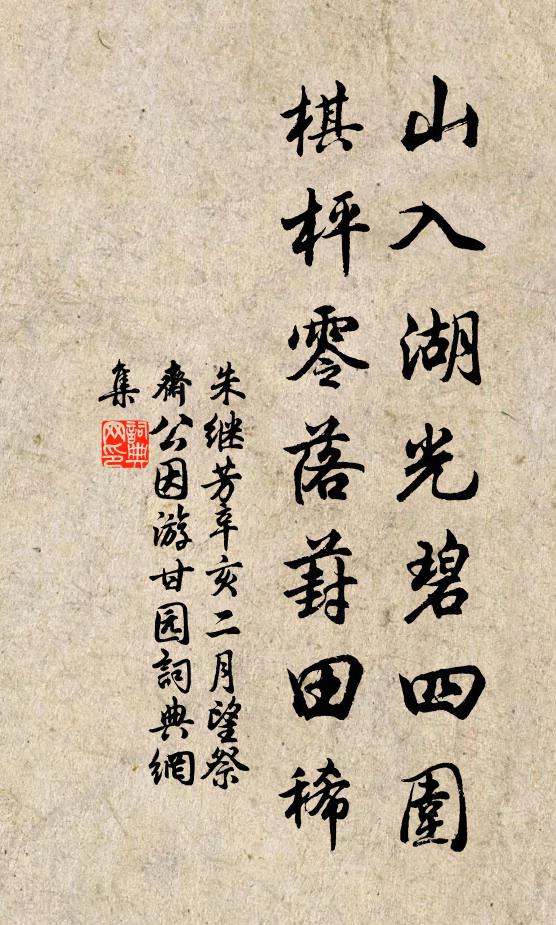 山入湖光碧四圍
棋枰零落葑田稀
朱继芳辛亥二月望祭
齋公因游甘园詞典網
集
詞典
网印